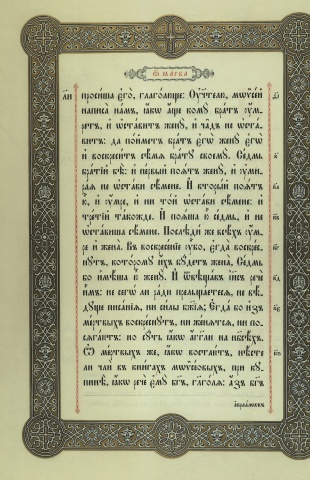 Ѿ МАРКА
просиша єго̀, глаго́люще: Оу҆чи́телю, мѡѷсе́й
написа̀ на́мъ, ꙗ҆́кѡ а҆́ще комꙋ̀ бра́тъ оу҆́м-
ретъ, и҆ ѡ҆ста́витъ женꙋ̀, и҆ ча̑дъ не ѡ҆ста-
витъ: да по́йметъ бра́тъ є҆гѡ̀ женꙋ̀ є҆гѡ̀
и҆ воскреси́тъ сѣ́мѧ бра́тꙋ своемꙋ̀. Се́дмь
бра́тїй бѣ̀: и҆ пе́рвый поѧ́тъ женꙋ̀, и҆ оу҆ми-
ра́ѧ не ѡ҆ста́ви сѣ́мене. И҆ вторы́й поѧ́тъ
ю҆̀, и҆ оу҆́мре, и҆ ни то́й ѡ҆ста́ви сѣ́мене: и҆
тре́тїй та́кожде. И҆ поѧ́ша ю҆̀ се́дмь, и҆ не
ѡ҆ста́виша сѣ́мене. Послѣди́ же всѣ́хъ оу҆́м-
ре и҆ жена̀. Въ воскресе́нїе оу҆̀бо, є҆гда̀ воскре́с-
нꙋтъ, кото́ромꙋ и҆́хъ бꙋ́детъ жена̀; Се́дмь
бо и҆мѣ́ша ю҆̀ женꙋ̀. И҆ ѿвѣща́въ і҆и҃съ речѐ
и҆̀мъ: не сегѡ́ ли ра́ди прельща́етесѧ, не вѣ́-
дꙋще писа́нїѧ, ни си́лы бж҃їѧ; Є҆гда́ бо и҆з̾
ме́ртвыхъ воскре́снꙋтъ, ни же́нѧтсѧ, ни по-
сѧга́ютъ: но сꙋ́ть ꙗ҆́кѡ а҆́гг҃ли на нб҃сѣ́хъ.
Ѿ ме́ртвыхъ же, ꙗ҆́кѡ воста́ютъ, нѣ́сте
ли члѝ въ кни́гахъ мѡѷсе́овыхъ, при кꙋ-
пинѣ̀, ꙗ҆́кѡ речѐ є҆мꙋ̀ бг҃ъ, глаго́лѧ: а҆́зъ бг҃ъ
а҆враа́мовъ